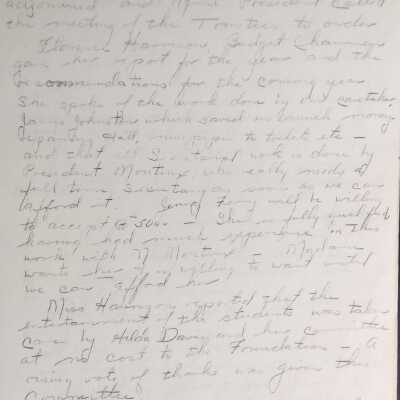 adjourned and President called
the meeting of the Trustees to order
Florence Harrison, Budget Chairman
gave her report for the year and the
recommendations for the coming year
She spoke of the work done by our caretaker,
Johnston which saved us much money
Hall, to tickets etc —
and that all Secretarial work is done by
President Montini, who really needs a
full time Secretary as soon as we can
afford it. Jenny will be willing
to accept 50.00 — She is fully qualified
having had much experience in this
work with — Madame
wants her & is willing to wait until
we can afford her
Miss Harrison reported that the
entertainment of the students was taken
care by Hilda Davey and her committee
at no cost to the Foundation — A
rising vote of thanks was given this
committee